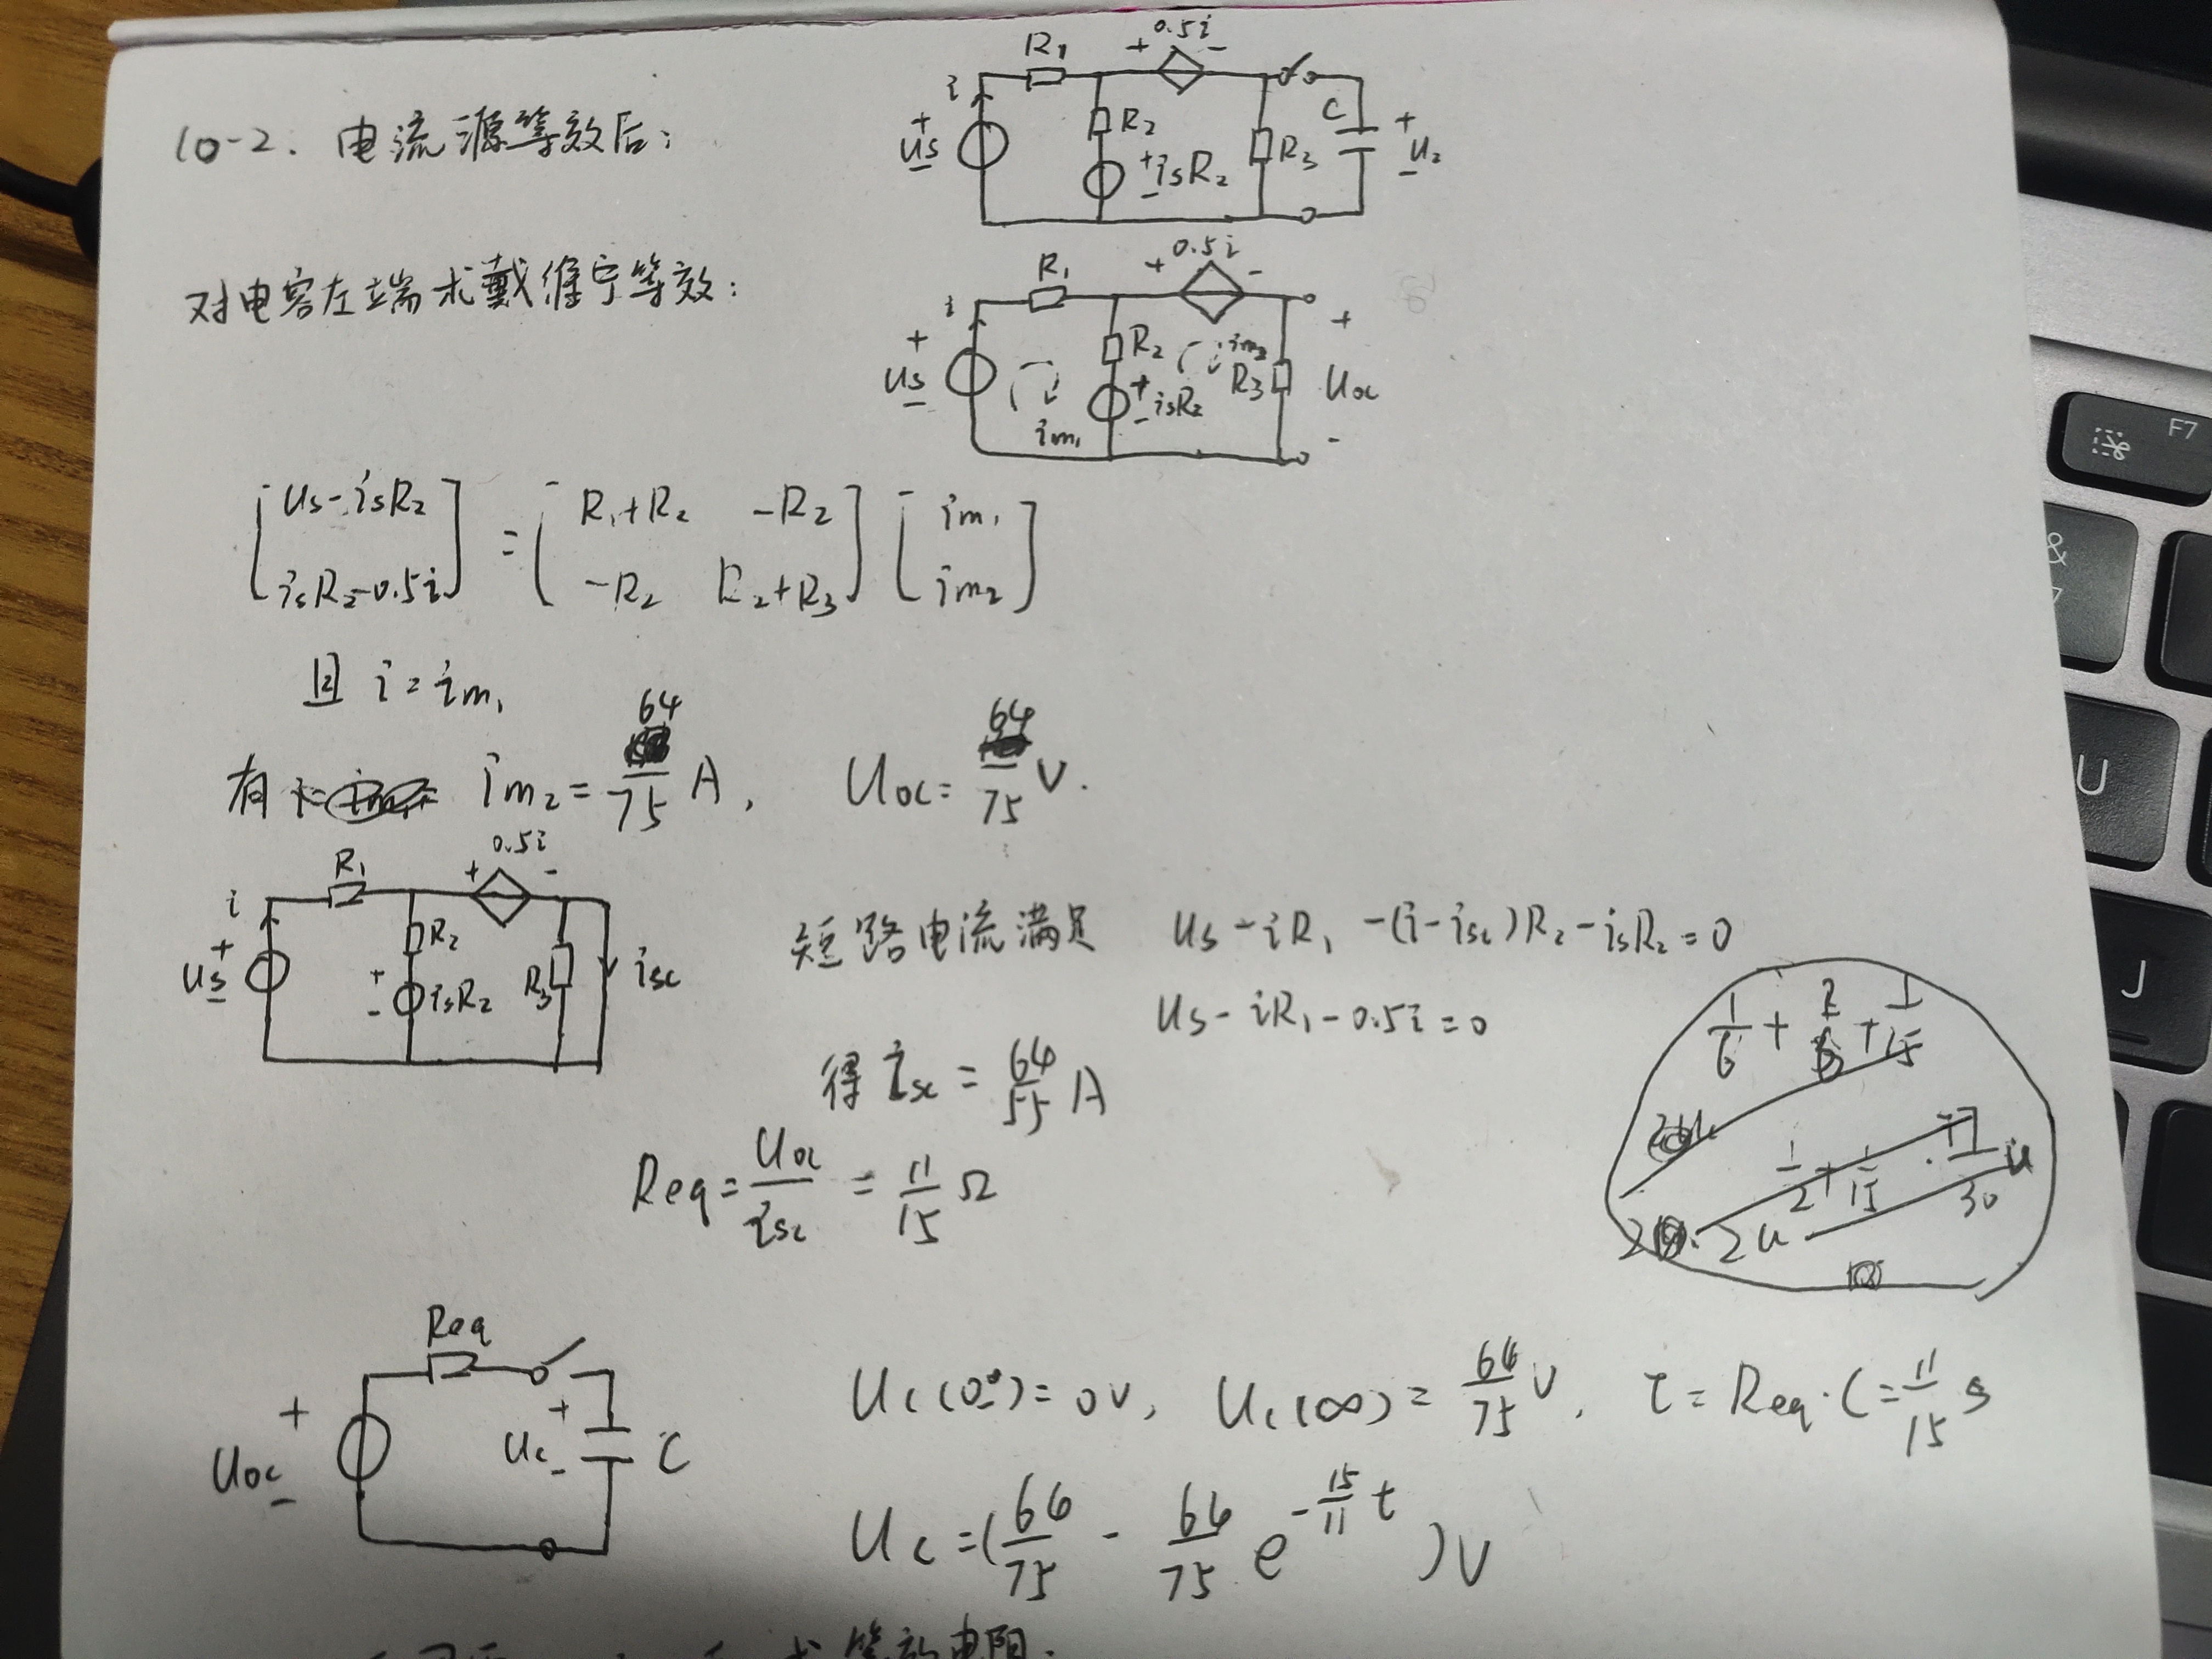 10-2. 电流源等效后:
R₁ + 0.5i -
i + us - R₂ + isR₂ - R₃ C + u₂ -
对电容左端求戴维宁等效:
R₁ + 0.5i -
i + us - R₂ + isR₂ - im₁ im₂ R₃ + uoc -
[us-isR₂
isR₂-0.5i] = [R₁+R₂ -R₂
-R₂ R₂+R₃] [im₁
im₂]
且 i = im₁
有 im₂ = 64/75 A, uoc = 64/75 V.
R₁ + 0.5i -
i + us - R₂ + isR₂ - R₃ isc
短路电流满足 us - iR₁ - (i-isc)R₂ - isR₂ = 0
us - iR₁ - 0.5i = 0
得 isc = 64/55 A
Req = uoc/isc = 11/15 Ω
1/2 + 1/15
2u
Req
+ uoc - + uc - C
uc(0⁻) = 0V, uc(∞) = 64/75 V, τ = Req·C = 11/15 s
uc = (64/75 - 64/75 e^(-15/11 t)) V
求等效电阻.